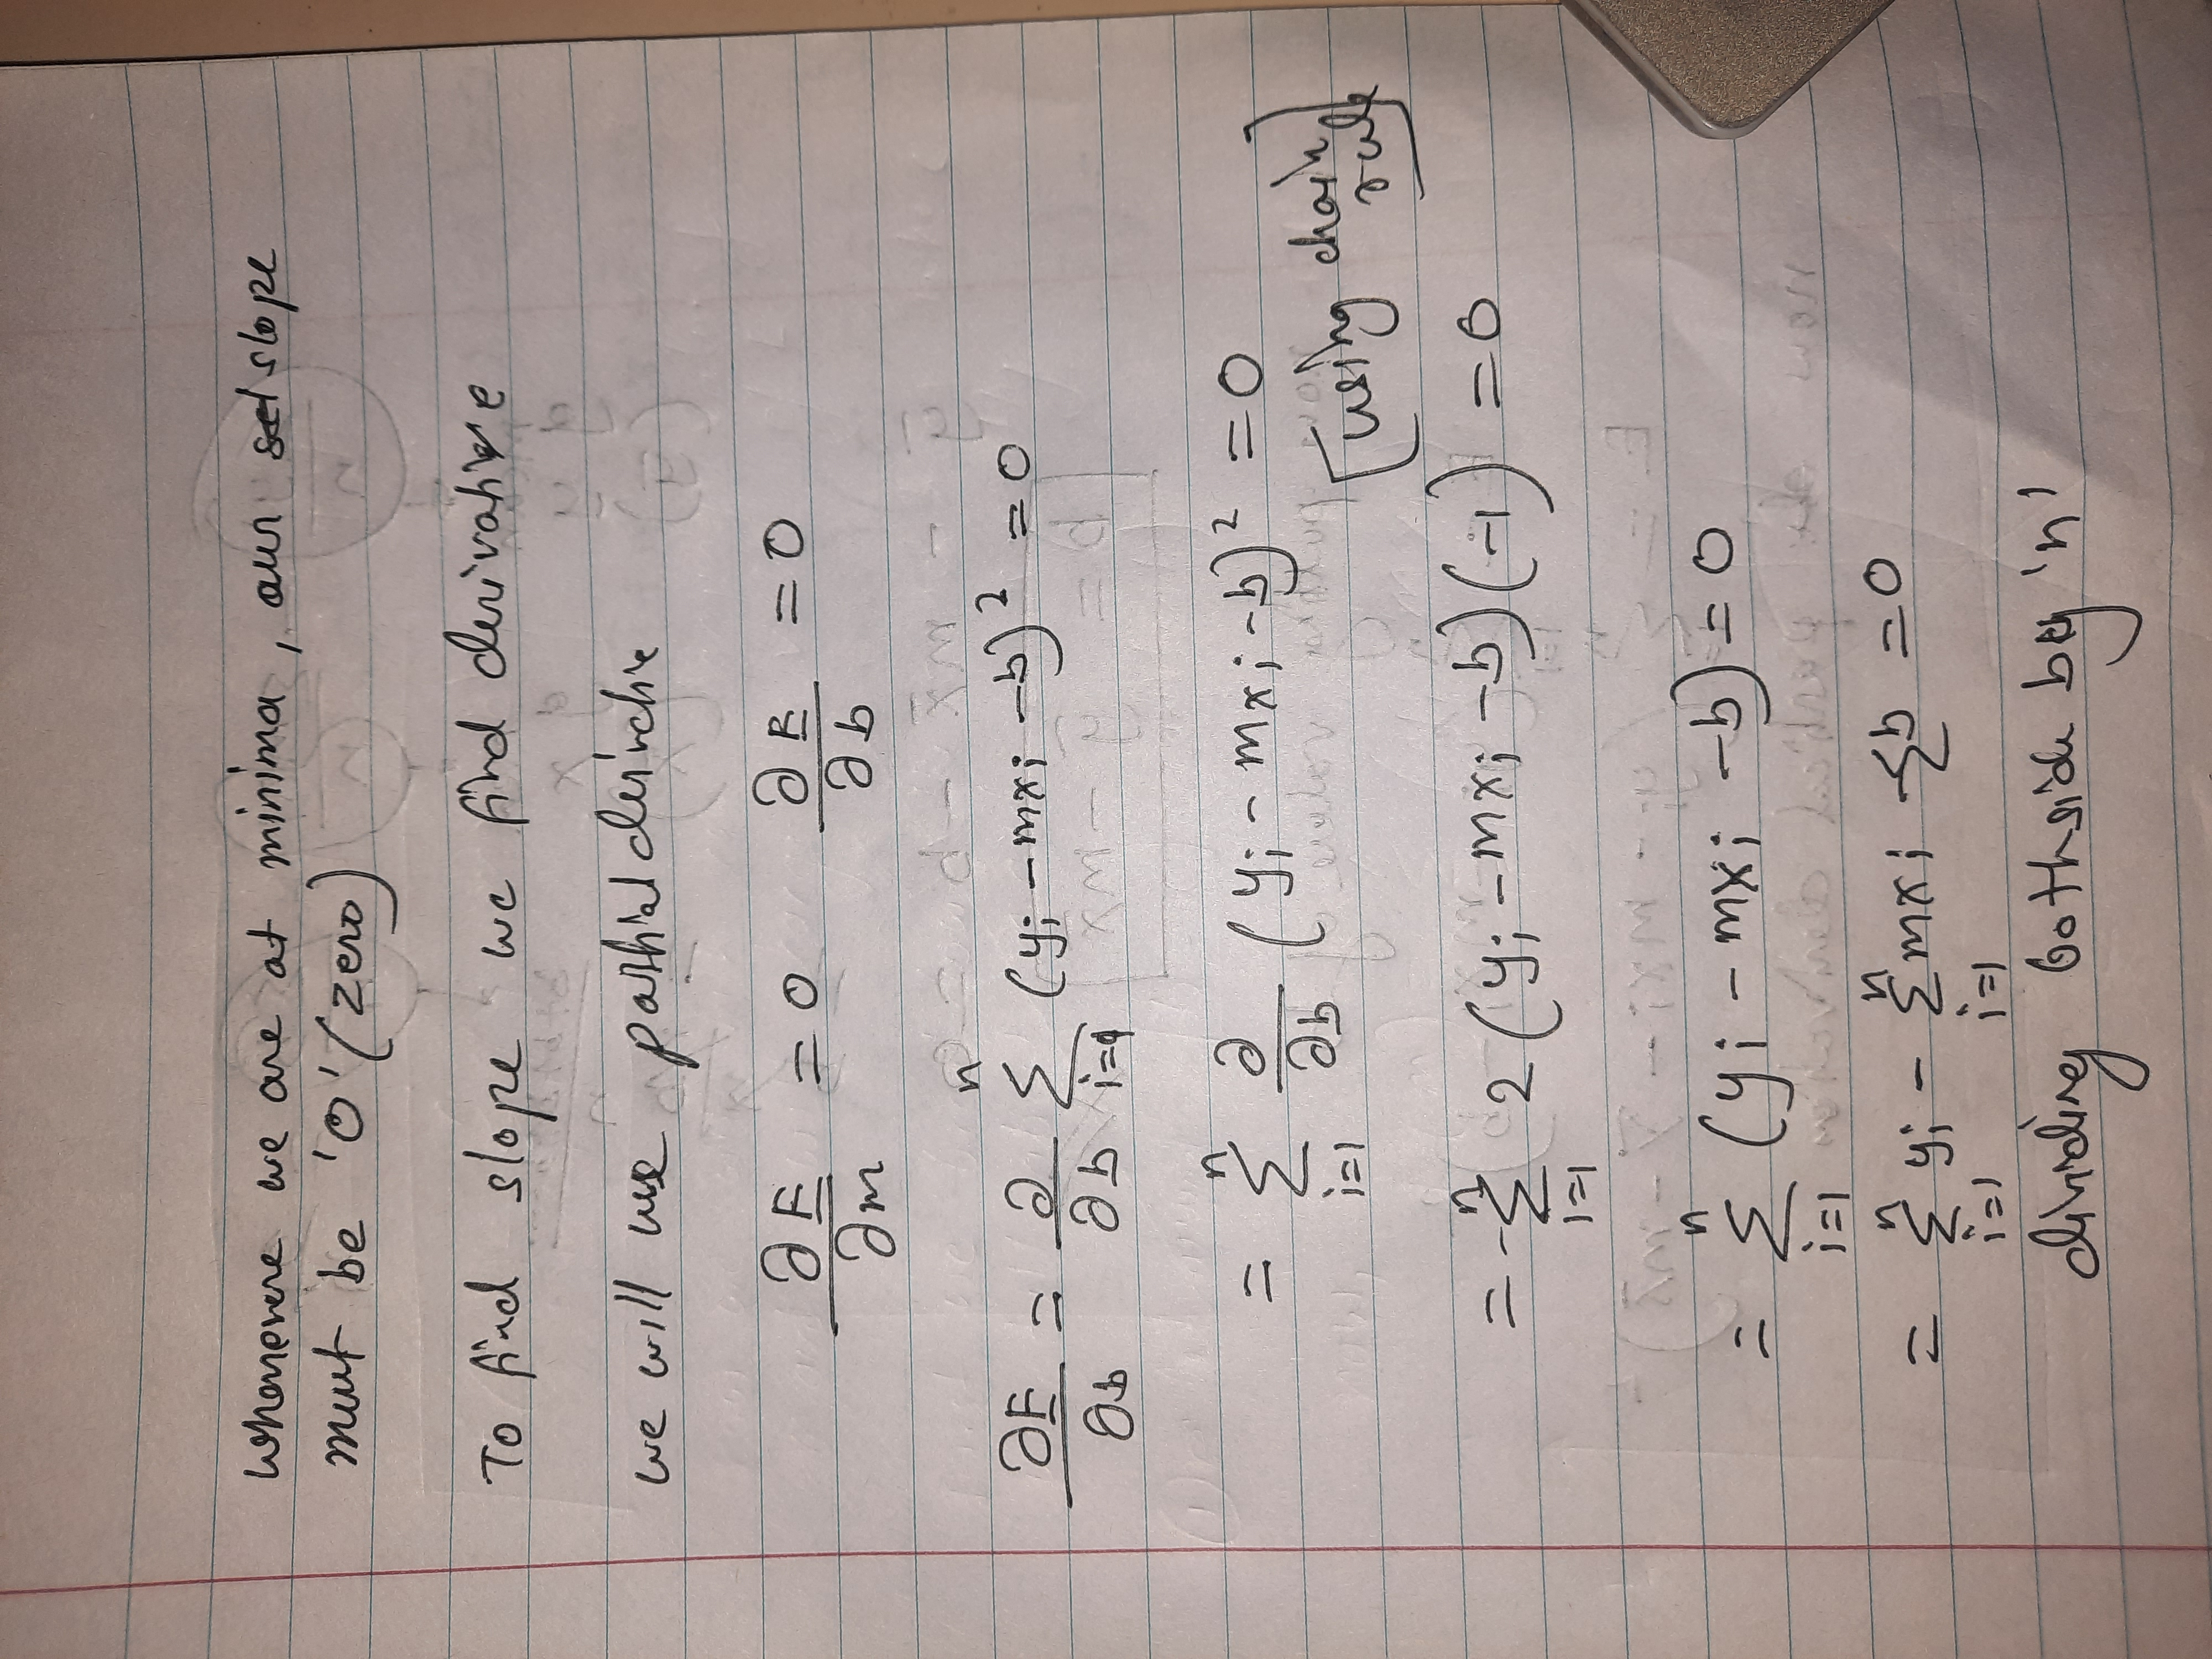 whenevere we are at minima, our slope
must be '0' (zero)
To find slope we find derivative
we will use partial derivative
∂E/∂m = 0   ∂E/∂b = 0
∂E/∂b = ∂/∂b Σ_{i=1}^{n} (yi - mxi - b)² = 0
= Σ_{i=1}^{n} ∂/∂b (yi - mxi - b)² = 0
[using chain rule]
= -Σ_{i=1}^{n} 2 (yi - mxi - b)(-1) = 0
= Σ_{i=1}^{n} (yi - mxi - b) = 0
= Σ_{i=1}^{n} yi - Σ_{i=1}^{n} mxi - Σb = 0
dividing bothside by 'n'